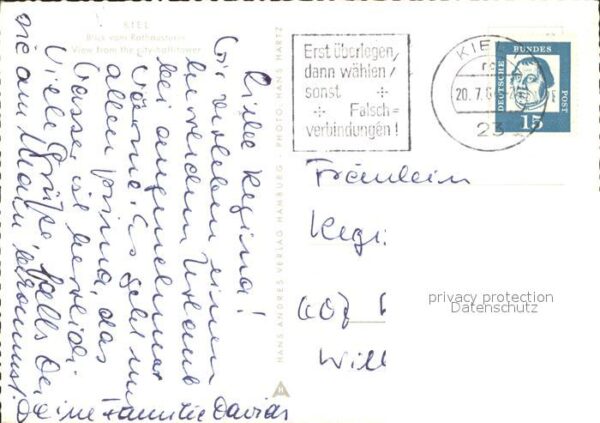 KIEL
Blick vom Rathausturm
View from the city-hall tower
Liebe Regina!
Wir verleben einen
herrlichen Urlaub
bei angenehmer
Wärme. Es geht uns
allen prima, das
Wasser ist herrlich.
Viele Grüße, falls Du
die am Main bekommst.
Deine Familie Davids
HANS ANDRES VERLAG HAMBURG - PHOTO: HANS HARTZ
H
Erst überlegen,
dann wählen
sonst
Falsch=
verbindungen!
KIEL
20.7.6
23
DEUTSCHE BUNDES POST
15
Fräulein
Regi
Will
privacy protection
Datenschutz